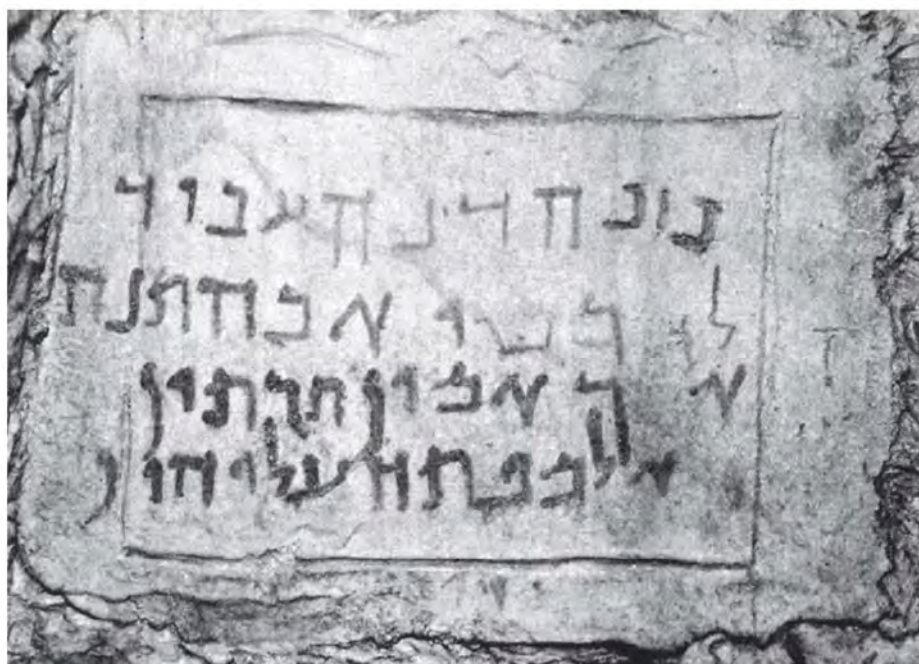 כוכה דנה עביד
לגרמי אבהתנה
אמין תרתין
למפתח עליהון